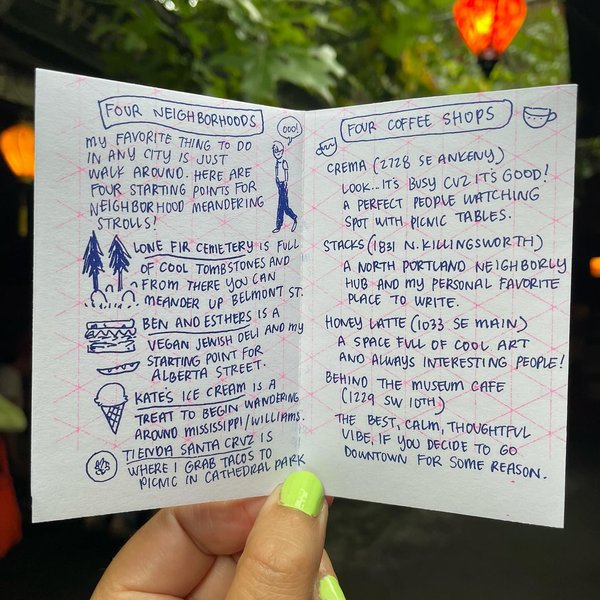 FOUR NEIGHBORHOODS
MY FAVORITE THING TO DO
IN ANY CITY IS JUST
WALK AROUND. HERE ARE
FOUR STARTING POINTS FOR
NEIGHBORHOOD MEANDERING
STROLLS!
OOO!
LONE FIR CEMETERY IS FULL
OF COOL TOMBSTONES AND
FROM THERE YOU CAN
MEANDER UP BELMONT ST.
BEN AND ESTHERS IS A
VEGAN JEWISH DELI AND MY
STARTING POINT FOR
ALBERTA STREET.
KATE'S ICE CREAM IS A
TREAT TO BEGIN WANDERING
AROUND MISSISSIPPI/WILLIAMS.
TIENDA SANTA CRUZ IS
WHERE I GRAB TACOS TO
PICNIC IN CATHEDRAL PARK
FOUR COFFEE SHOPS
CREMA (2728 SE ANKENY)
LOOK... IT'S BUSY CUZ IT'S GOOD!
A PERFECT PEOPLE WATCHING
SPOT WITH PICNIC TABLES.
STACKS (1831 N. KILLINGSWORTH)
A NORTH PORTLAND NEIGHBORLY
HUB AND MY PERSONAL FAVORITE
PLACE TO WRITE.
HONEY LATTE (1033 SE MAIN)
A SPACE FULL OF COOL ART
AND ALWAYS INTERESTING PEOPLE!
BEHIND THE MUSEUM CAFE
(1229 SW 10TH)
THE BEST, CALM, THOUGHTFUL
VIBE, IF YOU DECIDE TO GO
DOWNTOWN FOR SOME REASON.